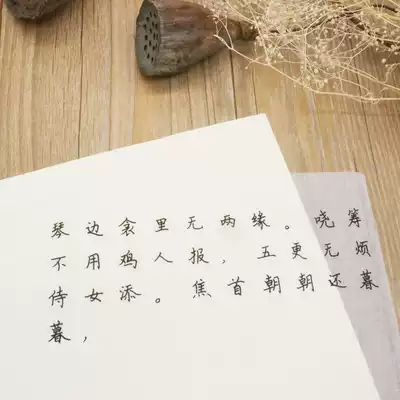 琴边衾里无两缘。哓筹
不用鸡人报，五更无烦
侍女添。焦首朝朝还暮
暮，